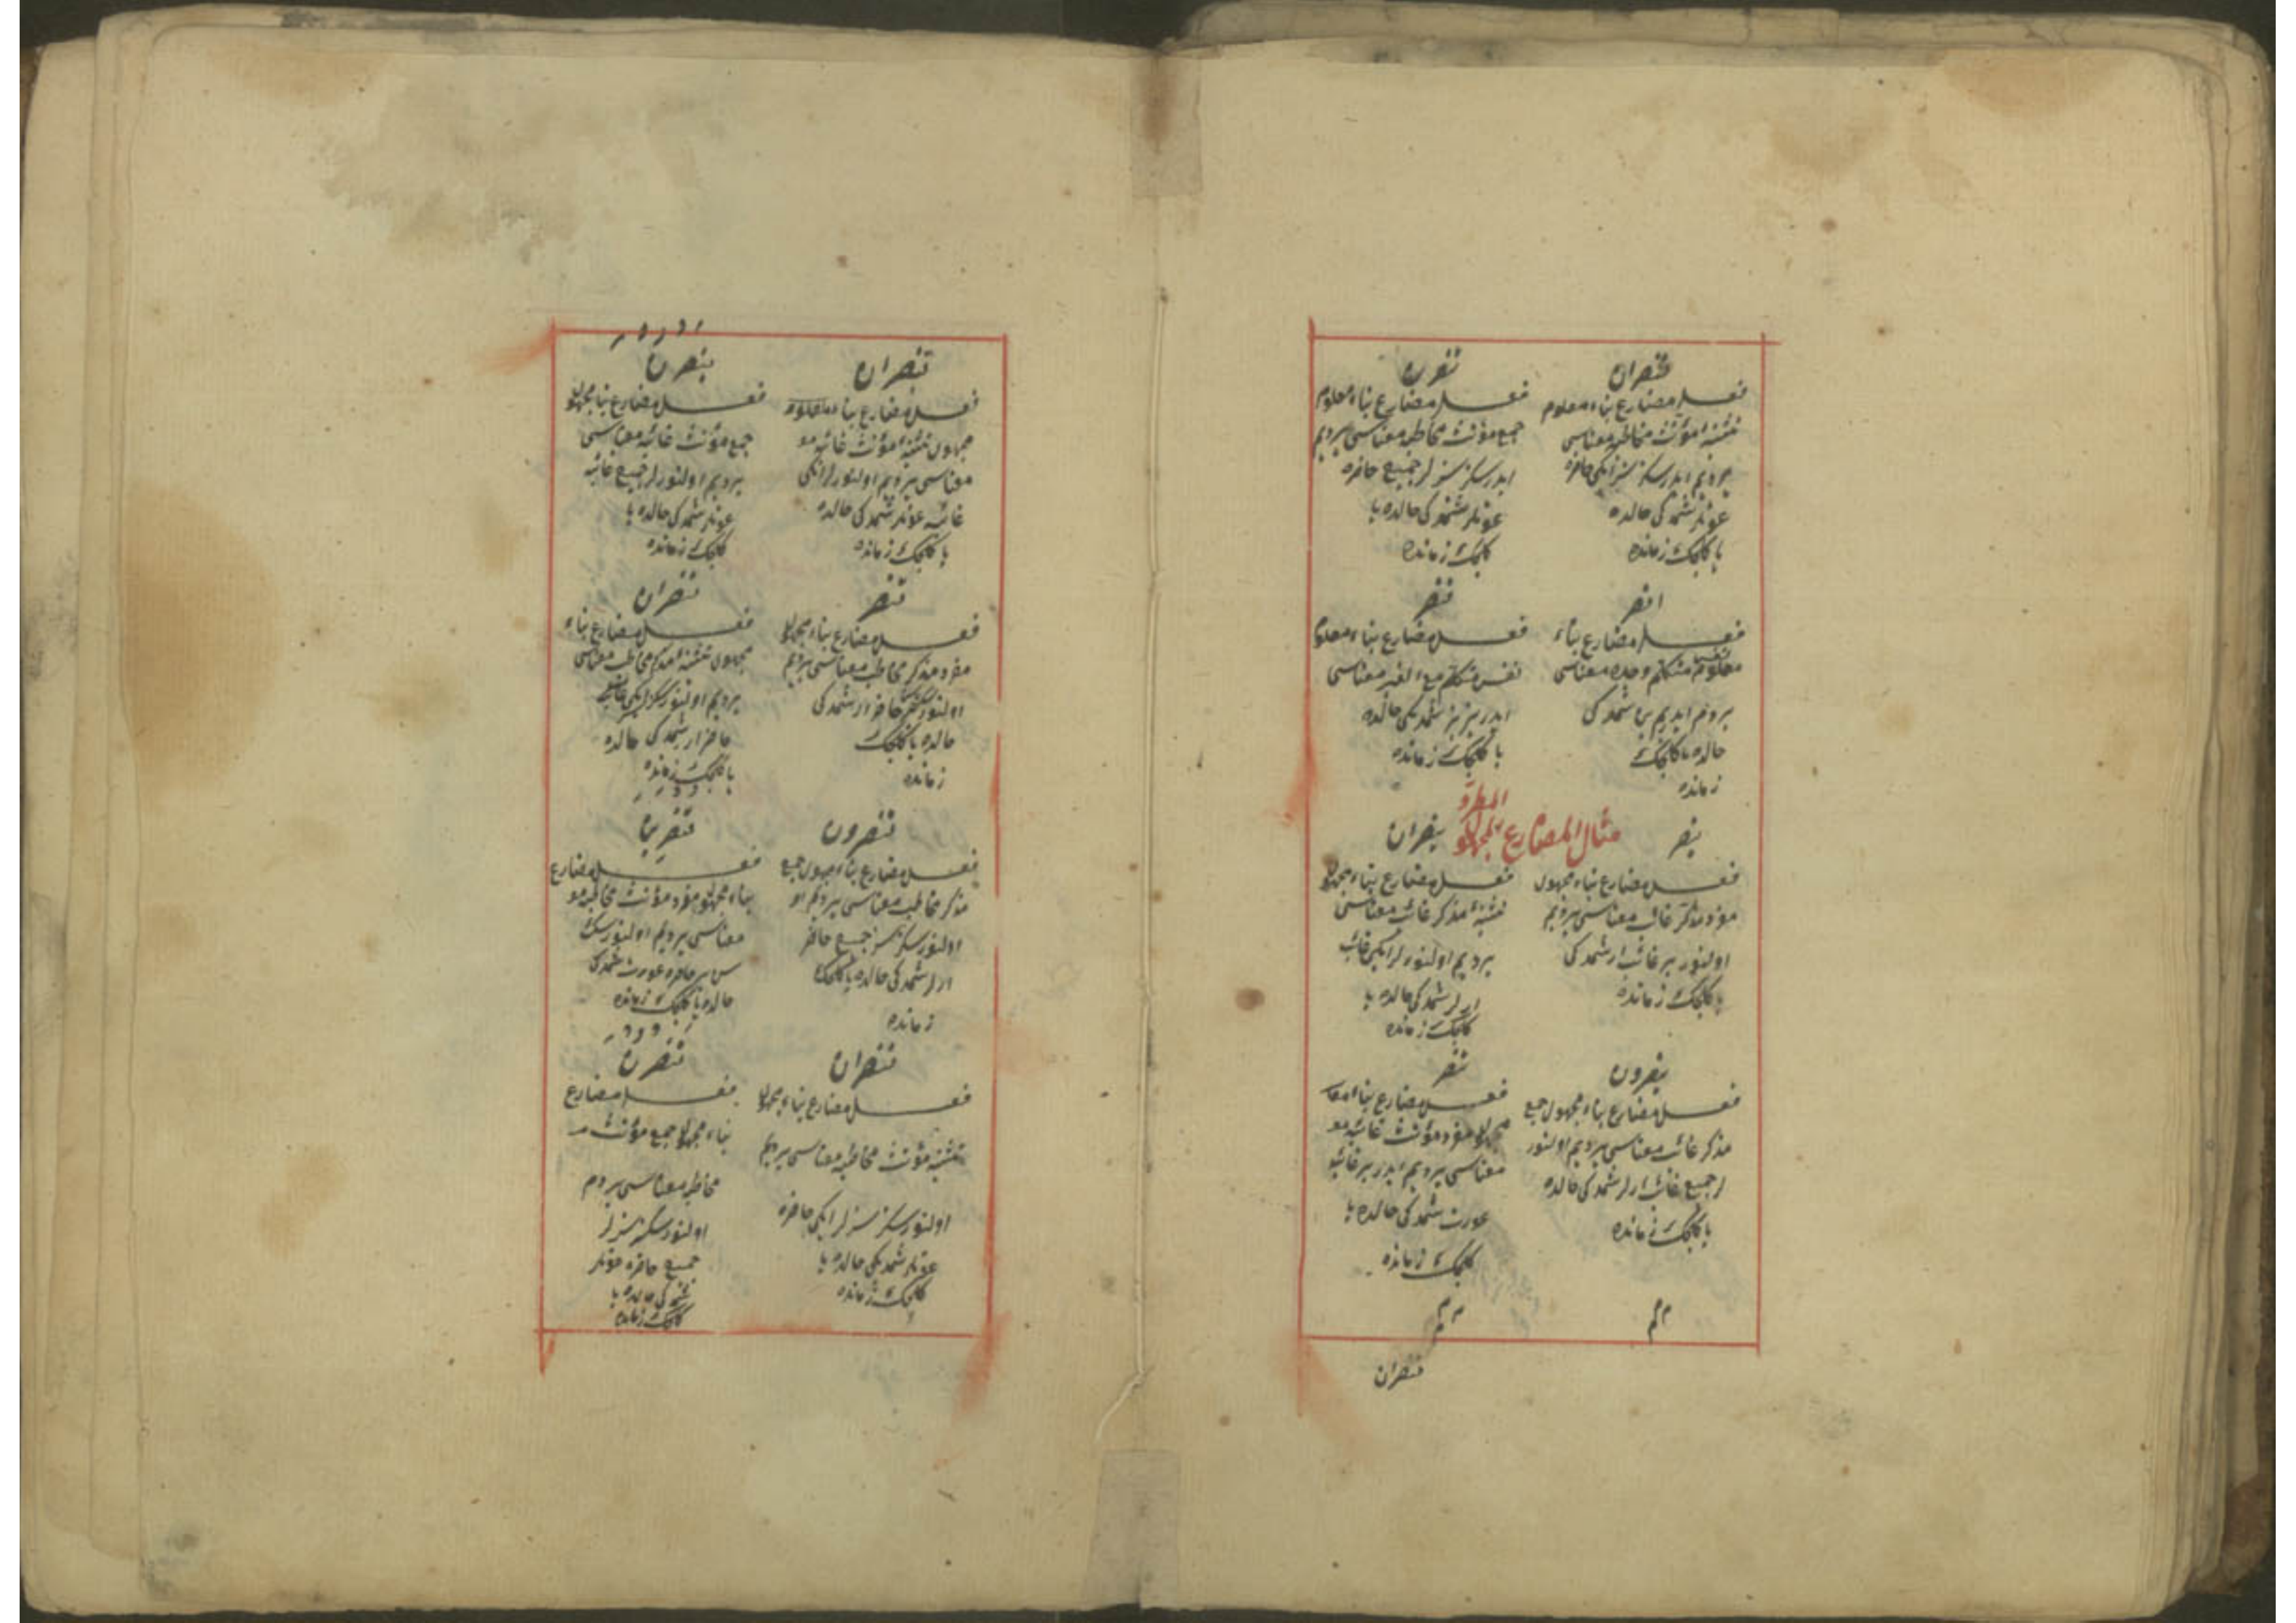 تنصران
فعل مضارع بناء معلوم
تثنیهٔ مؤنث مخاطبه معناسی
یردیم ایدرسکز سز ایکی حاضره
عورتلر شمدکی حالده
یا کلجک زمانده
تنصرن
فعل مضارع بناء معلوم
جمع مؤنث مخاطبه معناسی یردیم
ایدرسکز سزلر جمیع حاضره
عورتلر شمدکی حالده یا
کلجک زمانده
انصر
فعل مضارع بناء
معلوم نفس متکلم وحده معناسی
یردم ایدیم بن شمدکی
حالده یا کلجک
زمانده
ننصر
فعل مضارع بناء معلوم
نفس متکلم مع الغیر معناسی
ایدریز بز شمدیکی حالده
یا کلجک زمانده
المطرد
مثال المضارع المجهول
ینصر
فعل مضارع بناء مجهول
مفرد مذکر غائب معناسی یردیم
اولنور بر غائب ار شمدکی
یا کلجک زمانده
ینصران
فعل مضارع بناء مجهول
تثنیهٔ مذکر غائب معناسی
یردیم اولنورلر ایکی غائب
ارلر شمدکی حالده یا
کلجک زمانده
ینصرون
فعل مضارع بناء مجهول جمع
مذکر غائب معناسی یردیم اولنور
لر جمیع غائب ارلر شمدکی حالده
یا کلجک زمانده
تنصر
فعل مضارع بناء
مجهول مفرد مؤنث غائبه مو
معناسی یردیم ایدر بر غائبه
عورت شمدکی حالده یا
کلجک زمانده
تنصران
تنصران
فعل مضارع بناء معلوم
مجهول تثنیهٔ مؤنث غائبه مو
معناسی یردیم اولنورلر ایکی
غائبه عورتلر شمدکی حالده
یا کلجک زمانده
ینصرن
فعل مضارع بناء مجهول
جمع مؤنث غائبه معناسی
یردیم اولنورلر جمیع غائبه
عورتلر شمدکی حالده یا
کلجک زمانده
تنصر
فعل مضارع بناء مجهول
مفرد مذکر مخاطب معناسی یردیم
اولنورسک حاضر ار شمدکی
حالده یا کلجک
زمانده
تنصران
فعل مضارع بناء
مجهول تثنیهٔ مذکر مخاطب معناسی
یردیم اولنورسکز ایکی
حاضر ار شمدکی حالده
یا کلجک زمانده
تنصرون
فعل مضارع بناء مجهول جمع
مذکر مخاطب معناسی یردیم او
اولنورسکز سز جمیع حاضر
ارلر شمدکی حالده یا کلجک
زمانده
تنصرین
فعل مضارع
بناء مجهول مفرد مؤنث مخاطبه مو
معناسی یردیم اولنورسک
سن بر حاضره عورت شمدکی
حالده یا کلجک زمانده
تنصران
فعل مضارع بناء مجهول
تثنیه مؤنث مخاطبه معناسی یردیم
اولنورسکز سزلر ایکی حاضره
عورتلر شمدیکی حالده یا
کلجک زمانده
تنصرن
فعل مضارع
بناء مجهول جمع مؤنث
مخاطبه معناسی یردم
اولنورسکز سزلر
جمیع حاضره عورتلر
شمدکی حالده یا
کلجک زمانده